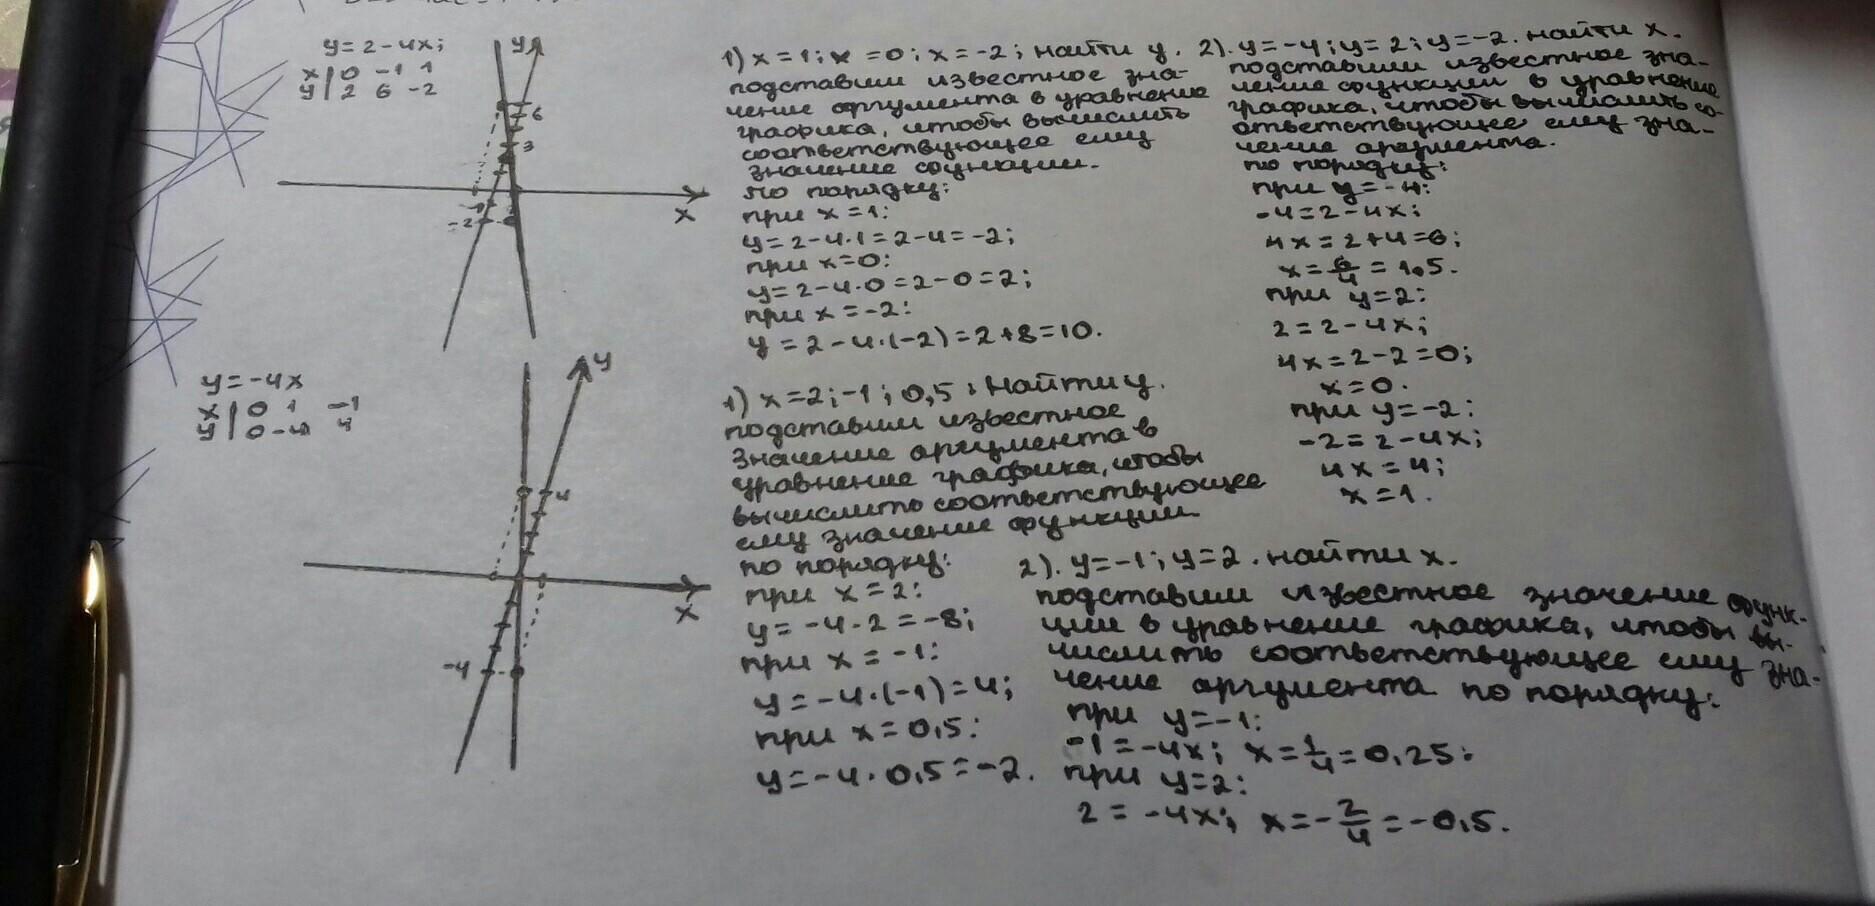 y=2-4x;
x | 0 -1 1
y | 2 6 -2
y
6
3
-1
-2
x
1) x=1; x=0; x=-2; найти y.
подставим известное зна-
чение аргумента в уравнение
графика, чтобы вычислить
соответствующее ему
значение функции.
по порядку:
при x=1:
y=2-4·1=2-4=-2;
при x=0:
y=2-4·0=2-0=2;
при x=-2:
y=2-4·(-2)=2+8=10.
2). y=-4; y=2; y=-2. найти x.
подставим известное зна-
чение функции в уравнение
графика, чтобы вычислить со-
ответствующее ему зна-
чение аргумента.
по порядку:
при y=-4:
-4=2-4x;
4x=2+4=6;
x=6/4=1.5.
при y=2:
2=2-4x;
4x=2-2=0;
x=0.
при y=-2:
-2=2-4x;
4x=4;
x=1.
y=-4x
x | 0 1 -1
y | 0 -4 4
y
4
x
-4
1) x=2; -1; 0,5; найти y.
подставим известное
значение аргумента в
уравнение графика, чтобы
вычислить соответствующее
ему значение функции
по порядку:
при x=2:
y=-4·2=-8;
при x=-1:
y=-4·(-1)=4;
при x=0,5:
y=-4·0,5=-2.
2). y=-1; y=2. найти x.
подставим известное значение функ-
ции в уравнение графика, чтобы вы-
числить соответствующее ему зна-
чение аргумента по порядку:
при y=-1:
-1=-4x; x=1/4=0,25;
при y=2:
2=-4x; x=-2/4=-0,5.